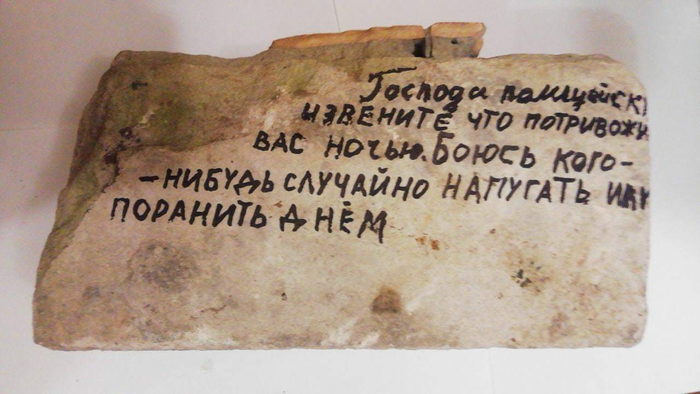 Господа полицейски
ИЗВЕНИТЕ ЧТО ПОТРИВОЖИ
ВАС НОЧЬЮ. БОЮСЬ КОГО-
-НИБУДЬ СЛУЧАЙНО НАПУГАТЬ ИЛИ
ПОРАНИТЬ ДНЁМ